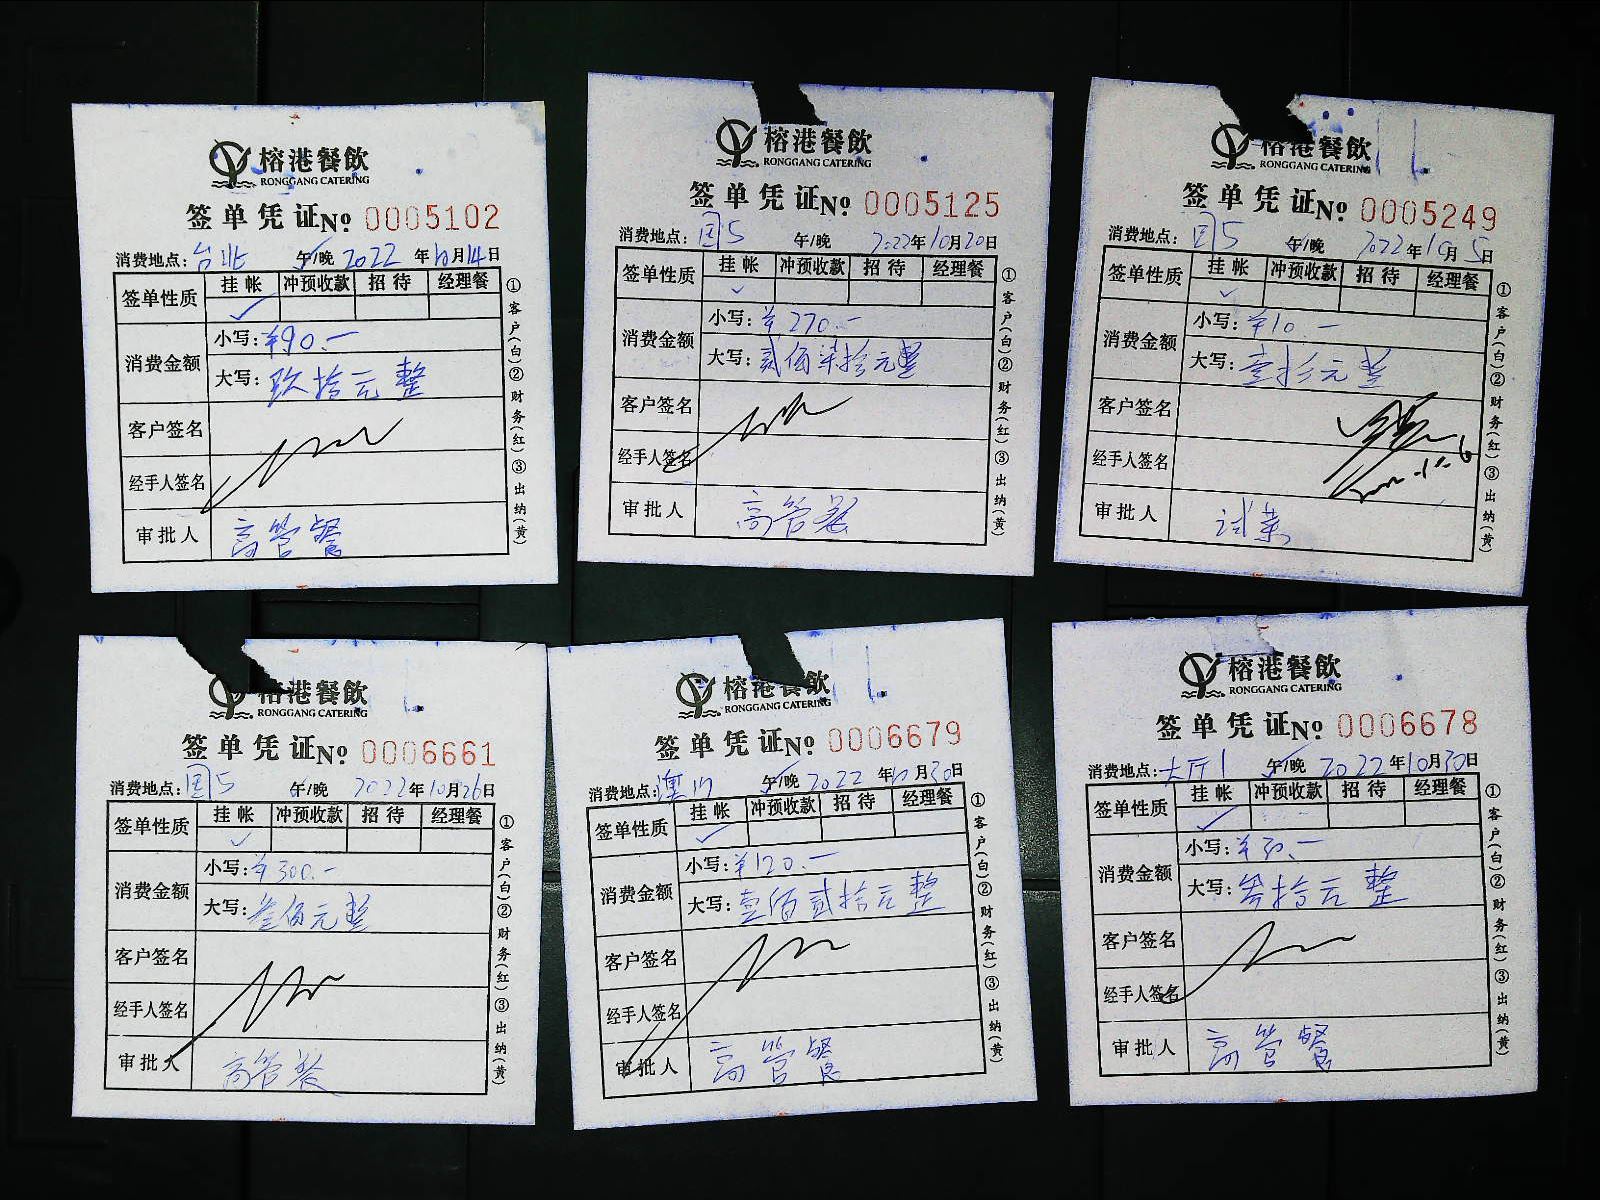 榕港餐飲
RONGGANG CATERING
签单凭证№ 0005102
消费地点：台北 午/晚 2022年10月14日
签单性质 挂帐 冲预收款 招待 经理餐
✓
消费金额 小写：¥90.—
大写：玖拾元整
客户签名
经手人签名
审批人 高管餐
①客户(白)②财务(红)③出纳(黄)
榕港餐飲
RONGGANG CATERING
签单凭证№ 0005125
消费地点：国5 午/晚 2022年10月20日
签单性质 挂帐 冲预收款 招待 经理餐
✓
消费金额 小写：¥270.—
大写：贰佰柒拾元整
客户签名
经手人签名
审批人 高管餐
①客户(白)②财务(红)③出纳(黄)
榕港餐飲
RONGGANG CATERING
签单凭证№ 0005249
消费地点：国5 午/晚 2022年10月5日
签单性质 挂帐 冲预收款 招待 经理餐
✓
消费金额 小写：¥10.—
大写：壹拾元整
客户签名
经手人签名
审批人 试菜
①客户(白)②财务(红)③出纳(黄)
榕港餐飲
RONGGANG CATERING
签单凭证№ 0006661
消费地点：国5 午/晚 2022年10月26日
签单性质 挂帐 冲预收款 招待 经理餐
✓
消费金额 小写：¥300.—
大写：叁佰元整
客户签名
经手人签名
审批人 高管餐
①客户(白)②财务(红)③出纳(黄)
榕港餐飲
RONGGANG CATERING
签单凭证№ 0006679
消费地点：澳门 午/晚 2022年10月30日
签单性质 挂帐 冲预收款 招待 经理餐
✓
消费金额 小写：¥120.—
大写：壹佰贰拾元整
客户签名
经手人签名
审批人 高管餐
①客户(白)②财务(红)③出纳(黄)
榕港餐飲
RONGGANG CATERING
签单凭证№ 0006678
消费地点：大厅1 午/晚 2022年10月30日
签单性质 挂帐 冲预收款 招待 经理餐
✓
消费金额 小写：¥30.—
大写：叁拾元整
客户签名
经手人签名
审批人 高管餐
①客户(白)②财务(红)③出纳(黄)